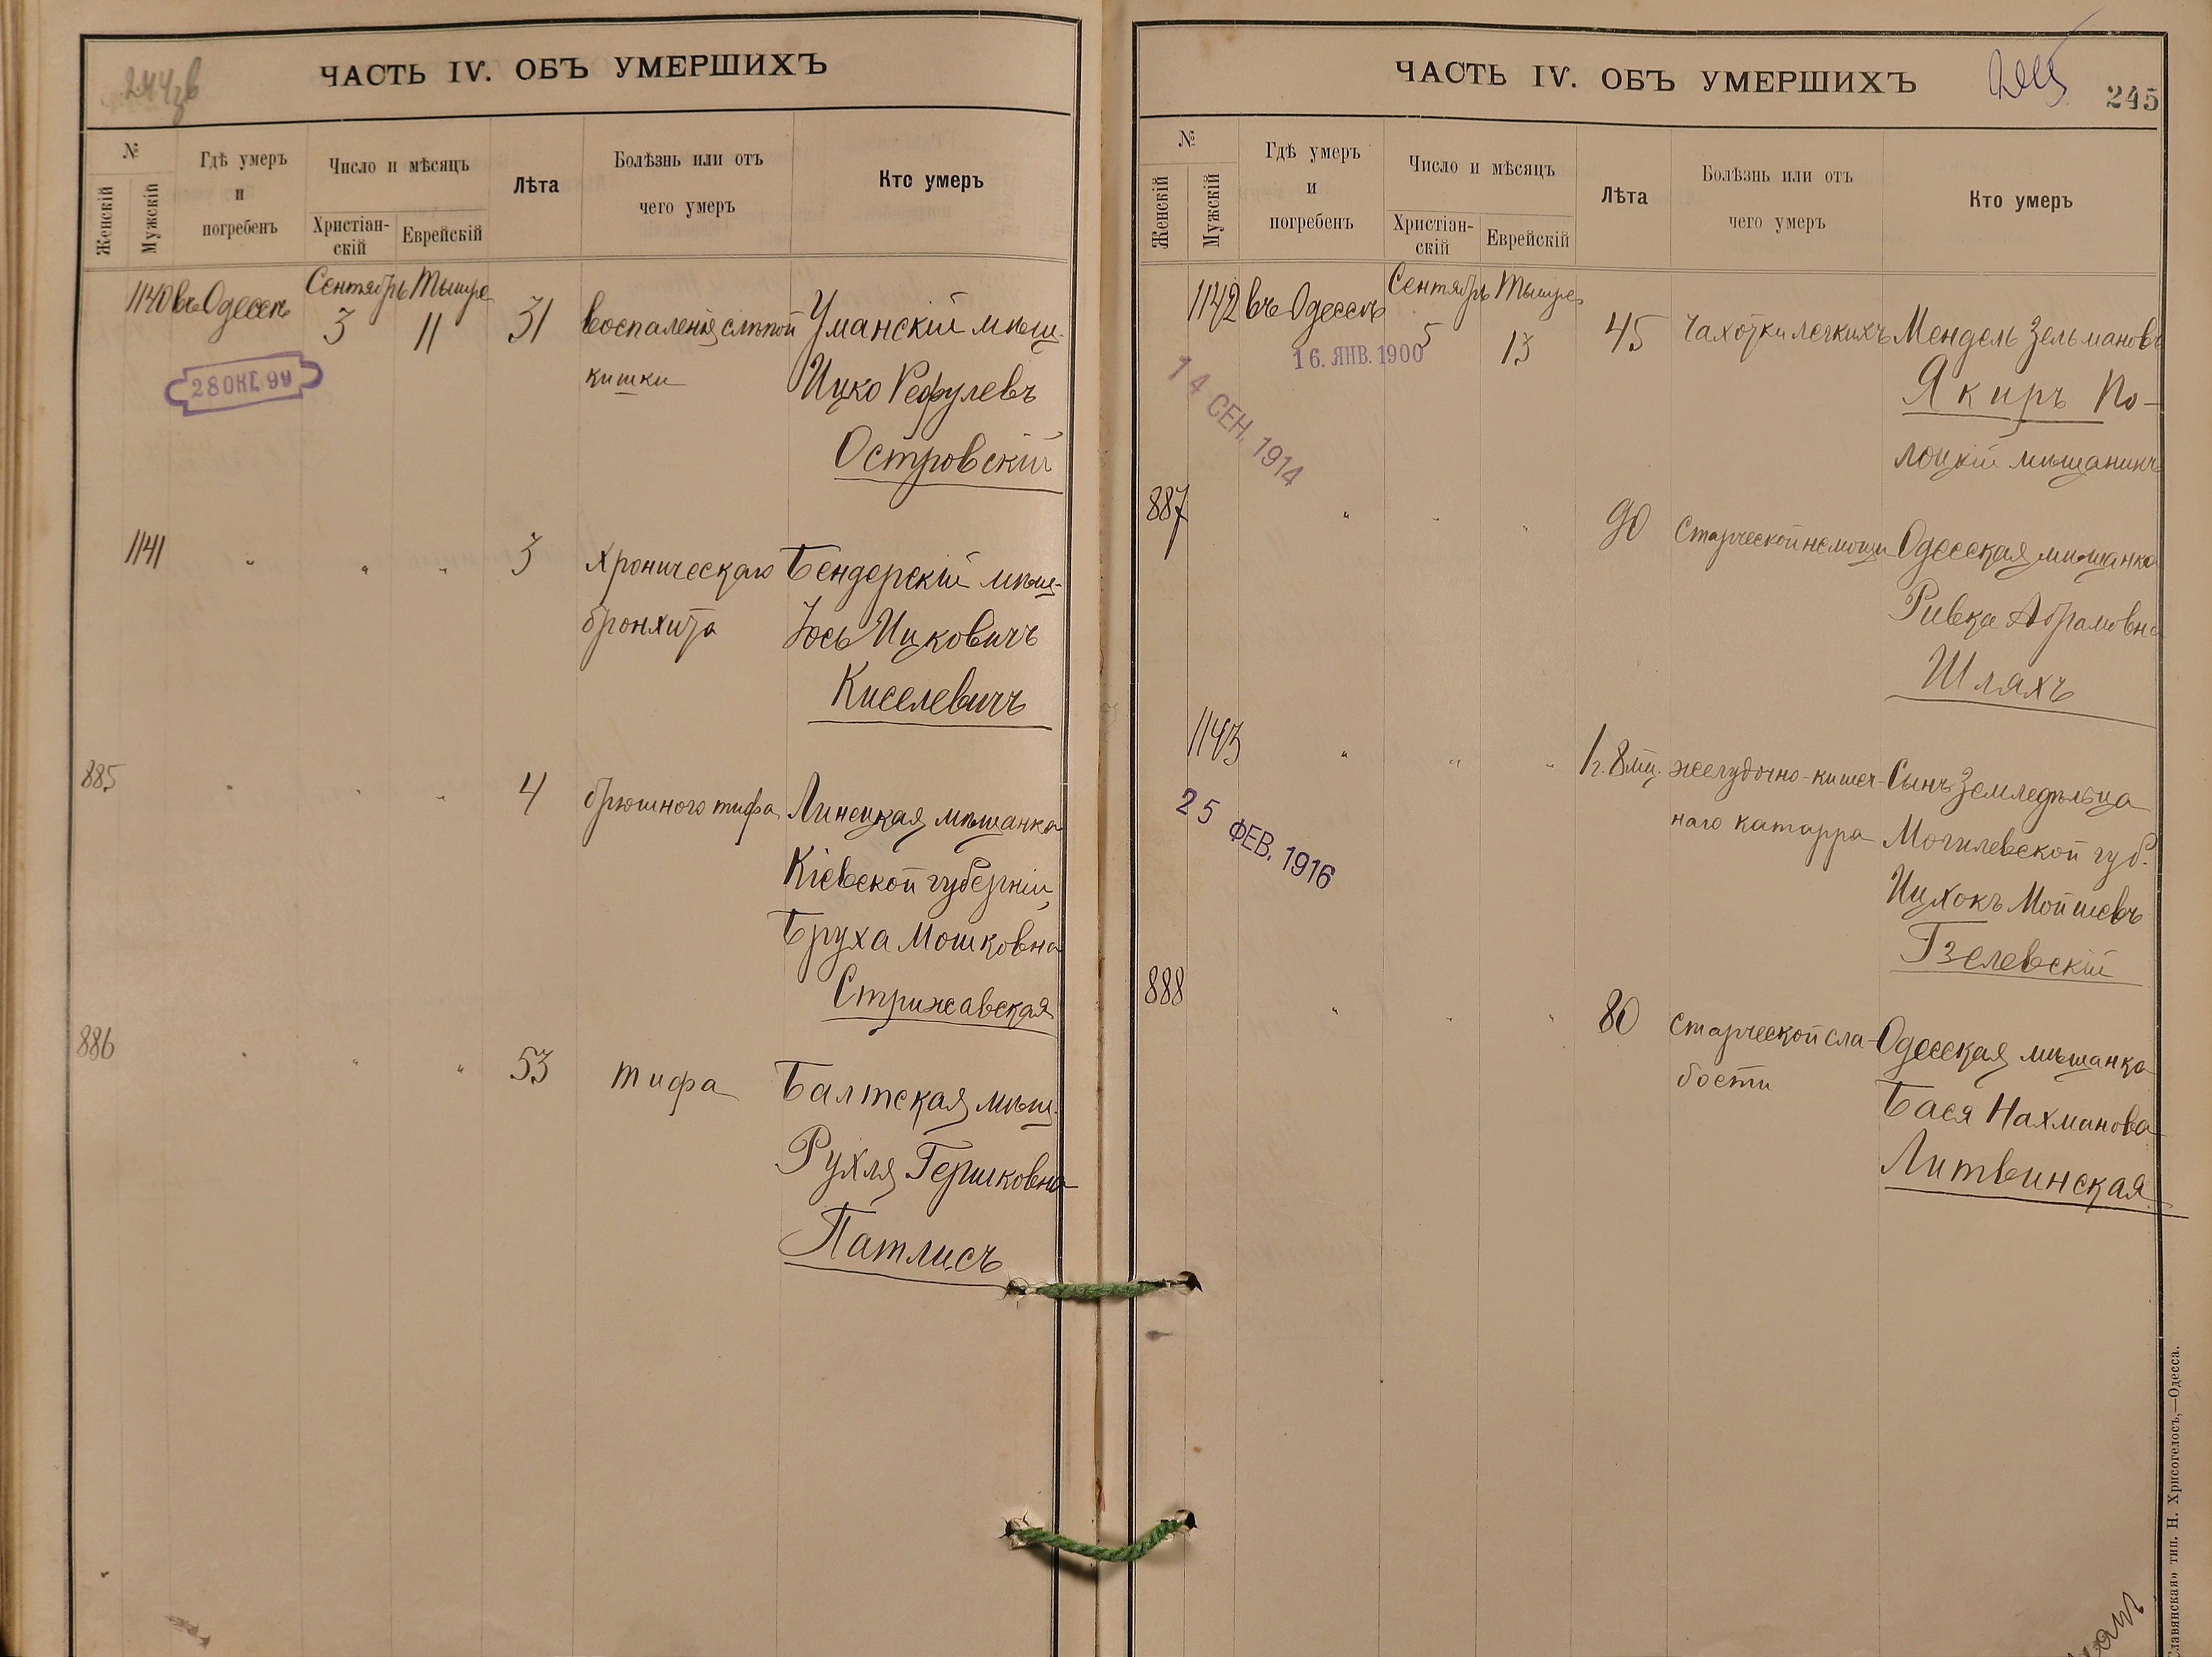 ЧАСТЬ IV. ОБЪ УМЕРШИХЪ
№
Женскій
Мужскій
Гдѣ умеръ
и
погребенъ
Число и мѣсяцъ
Христіан-
скій
Еврейскій
Лѣта
Болѣзнь или отъ
чего умеръ
Кто умеръ
1140 въ Одессѣ Сентябрь 3 Тышре 11 31 воспаленія слѣпой Уманскій мѣщ.
кишки Ицко Рефулевъ
28 ОКТ. 99
Островскій
1141 " " " 3 хроническаго Бендерскій мѣщ.
бронхита Іось Ицковичъ
Киселевичъ
885 " " " 4 брюшного тифа Линецкая мѣщанка
Кіевской губерніи,
Бруха Мошковна
Стрижавская
886 " " " 53 тифа Балтская мѣщ.
Рухля Гершковна
Патлисъ
ЧАСТЬ IV. ОБЪ УМЕРШИХЪ
245
№
Женскій
Мужскій
Гдѣ умеръ
и
погребенъ
Число и мѣсяцъ
Христіан-
скій
Еврейскій
Лѣта
Болѣзнь или отъ
чего умеръ
Кто умеръ
1142 въ Одессѣ Сентябрь 5 Тышре 13 45 чахотки легкихъ Мендель Зельмановъ
16. ЯНВ. 1900
14 СЕН. 1914
Якиръ По-
лоцкій мѣщанинъ
887 " " " 90 Старческой немощи Одесская мѣщанка
Ривка Абрамовна
Шляхъ
1143 " " " 1 г. 8 мц. желудочно-кишеч- Сынъ Земледѣльца
наго катарра Могилевской губ.
25 ФЕВ. 1916
Ицхокъ Мойшевъ
Гзелевскій
888 " " " 80 Старческой сла- Одесская мѣщанка
бости Бася Нахманова
Литвинская
Славянская» тип. Н. Хрисогелосъ,—Одесса.